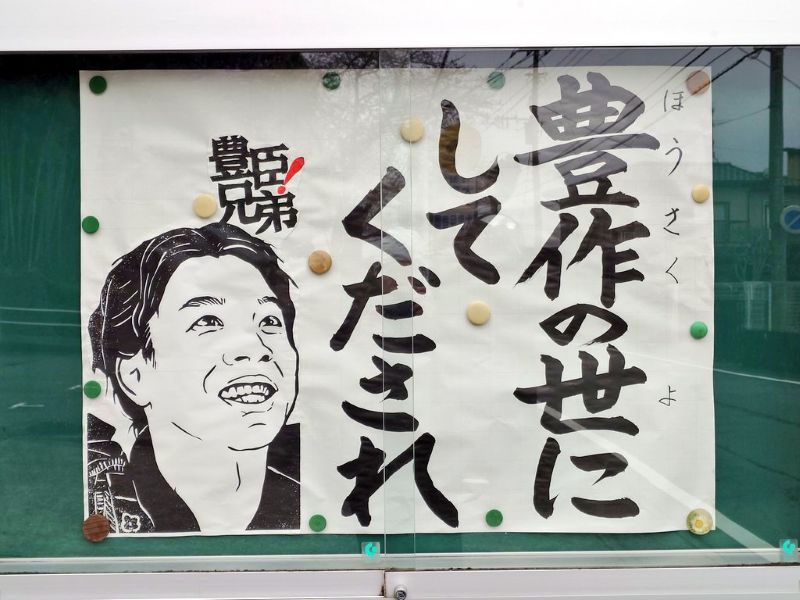 豊作の世に
ほうさく よ
して
くだされ
豊臣兄弟!